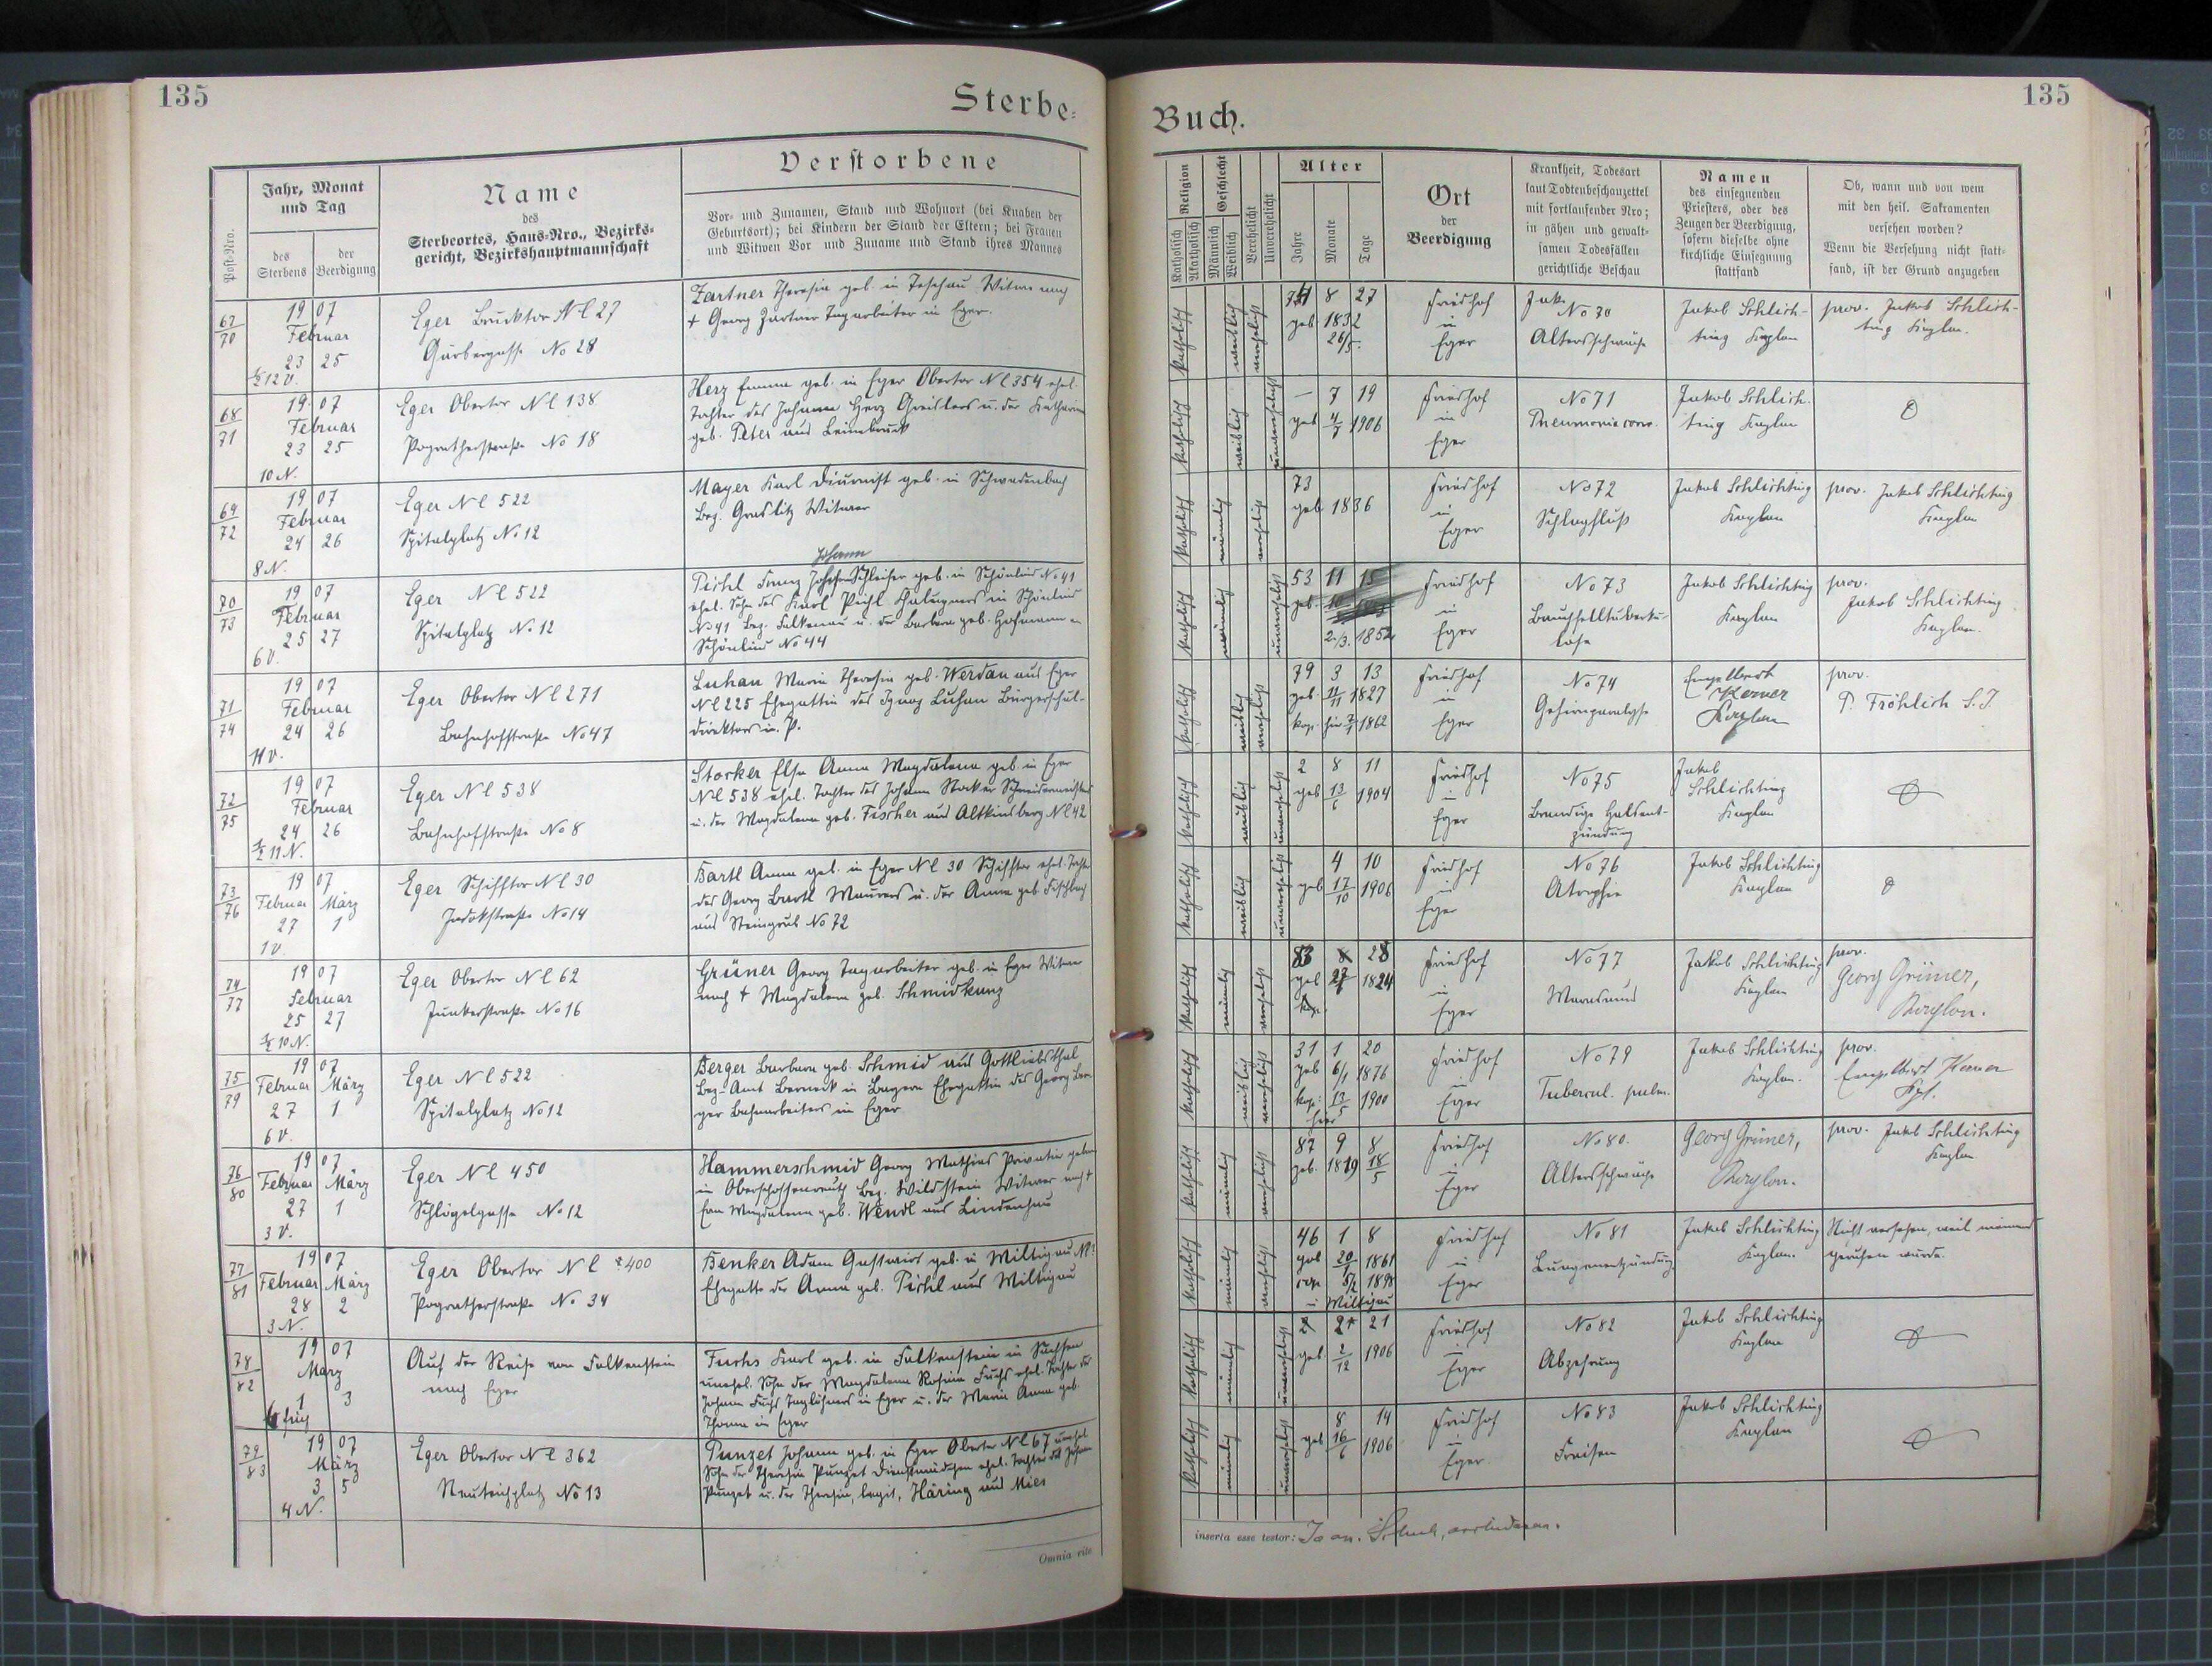 135
Sterbe-
Buch.
135
Post-Nro.
Jahr, Monat
und Tag
des
Sterbens
der
Beerdigung
Name
des
Sterbeortes, Haus-Nro., Bezirks-
gericht, Bezirkshauptmannschaft
Verstorbene
Vor- und Zunamen, Stand und Wohnort (bei Knaben der
Geburtsort); bei Kindern der Stand der Eltern; bei Frauen
und Witwen Vor und Zuname und Stand ihres Mannes
Religion
Katholisch
Akatholisch
Geschlecht
Männlich
Weiblich
Verehelicht
Unverehelicht
Alter
Jahre
Monate
Tage
Ort
der
Beerdigung
Krankheit, Todesart
laut Todtenbeschauzettel
mit fortlaufender Nro;
in gähen und gewalt-
samen Todesfällen
gerichtliche Beschau
Namen
des einsegnenden
Priesters, oder des
Zeugen der Beerdigung,
sofern dieselbe ohne
kirchliche Einsegnung
stattfand
Ob, wann und von wem
mit den heil. Sakramenten
versehen worden?
Wenn die Versehung nicht statt-
fand, ist der Grund anzugeben
67
70
1907
Februar
23 25
½12 V.
Eger Brucktor N C 27
Gärbergasse No 28
Zartner Theresia geb. in Witwe nach
† Georg Zartner Tagarbeiter in Eger.
katholisch
weiblich
verehelicht
8 27
geb. 1832
26/5.
Friedhof
in
Eger
No 70
Altersschwäche
Jakob Schlich-
ting Kaplan
prov. Jakob Schlich-
ting Kaplan.
68
71
1907
Februar
23 25
10 N.
Eger Obertor N C 138
Pogratherstraße No 18
Herz Emma geb. in Eger Obertor N C 354 ehel.
Tochter des Johann Herz Greislers u. der Katharina
geb. Peter aus Leimbruck
katholisch
weiblich
unverehelicht
— 7 19
geb 4/7 1906
Friedhof
in
Eger
No 71
Pneumonia
Jakob Schlich-
ting Kaplan
69
72
1907
Februar
24 26
8 N.
Eger N C 522
Spitalplatz No 12
Mayer Karl Diurnist geb. in Schwadenbach
Bez. Graslitz Witwer
katholisch
männlich
verehelicht
73
geb 1836
Friedhof
in
Eger
No 72
Schlagfluß
Jakob Schlichting
Kaplan
prov. Jakob Schlichting
Kaplan
70
73
1907
Februar
25 27
6 V.
Eger N C 522
Spitalplatz No 12
Johann
Pichl Franz Schleifer geb. in Schönlind No 41
ehel. Sohn des Karl Pichl in Schönlind
No 41 Bez. Falkenau u. der Barbara geb. Hofmann
Schönlind No 44
katholisch
männlich
unverehelicht
53 11 15
geb.
2/3. 1852
Friedhof
in
Eger
No 73
Bauchfelltuberku-
lose
Jakob Schlichting
Kaplan
prov.
Jakob Schlichting
Kaplan.
71
74
1907
Februar
24 26
11 V.
Eger Obertor N C 271
Bahnhofstraße No 47
Luhan Maria Theresia geb. Werdan aus Eger
N C 225 Ehegattin des Ignaz Luhan Bürgerschul-
direktors i. P.
katholisch
weiblich
verehelicht
79 3 13
geb. 11/11 1827
kop. hier 1862
Friedhof
in
Eger
No 74
Gehirnparalyse
Engelbert
Kerner
Kaplan
prov.
P. Fröhlich S.J.
72
75
1907
Februar
24 26
½ 11 N.
Eger N C 538
Bahnhofstraße No 8
Stocker Elsa Anna Magdalena geb. in Eger
N C 538 ehel. Tochter des Johann Stocker Schneidermeisters
u. der Magdalena geb. Fischer aus Altkinsberg N C 42
katholisch
weiblich
unverehelicht
2 8 11
geb 13/6 1904
Friedhof
in
Eger
No 75
Brandige Halsent-
zündung
Jakob
Schlichting
Kaplan
73
76
1907
Februar März
27 1
1 V.
Eger Schifftor N C 30
No 14
Bartl Anna geb. in Eger N C 30 Schifftor ehel. Tochter
des Georg Bartl Maurers u. der Anna geb. Fischbach
aus Steingrub No 72
katholisch
weiblich
unverehelicht
4 10
geb 17/10 1906
Friedhof
in
Eger
No 76
Atrophie
Jakob Schlichting
Kaplan
74
77
1907
Februar
25 27
½ 10 N.
Eger Obertor N C 62
Junkerstraße No 16
Grüner Georg Tagarbeiter geb. in Eger Witwer
nach † Magdalena geb. Schmidkunz
katholisch
männlich
verehelicht
83 28
geb 1824
kop.
Friedhof
in
Eger
No 77
Marasmus
Jakob Schlichting
Kaplan
prov.
Georg Grüner,
Kaplan.
75
79
1907
Februar März
27 1
6 V.
Eger N C 522
Spitalplatz No 12
Berger Barbara geb. Schmid aus Gottliebsthal
Bez.-Amt Berneck in Bayern Ehegattin des Georg Ber-
ger Bahnarbeiters in Eger
katholisch
weiblich
verehelicht
31 1 20
geb 6/1 1876
kop: 13/5 1900
hier
Friedhof
in
Eger
No 79
Tubercul. pulm.
Jakob Schlichting
Kaplan.
prov.
Engelbert Kerner
Kpl.
76
80
1907
Februar März
27 1
3 V.
Eger N C 450
Schlögelgasse No 12
Hammerschmid Georg Mathias Privatier geboren
in Oberschossenreuth Bez. Wildstein Witwer nach †
Eva Magdalena geb. Wendl aus Lindenhau
katholisch
männlich
verehelicht
87 9 8
geb. 1819 18/5
Friedhof
in
Eger
No 80.
Altersschwäche
Georg Grüner,
Kaplan.
prov. Jakob Schlichting
Kaplan
77
81
1907
Februar März
28 2
3 N.
Eger Obertor N C 400
Pogratherstraße No 34
Benker Adam Gastwirt geb. in Miltigau
Ehegatte der Anna geb. Pichl aus Miltigau
katholisch
männlich
verehelicht
46 1 8
geb 20/1 1861
1898
in Miltigau
Friedhof
in
Eger
No 81
Lungenentzündung
Jakob Schlichting
Kaplan.
Nicht versehen, weil niemand
gerufen wurde.
78
82
1907
März
1 3
früh
Auf der Reise von Falkenstein
nach Eger
Fuchs Karl geb. in Falkenstein in Sachsen
unehel. Sohn der Magdalena Rosina Fuchs ehel. Tochter des
Johann Fuchs Taglöhners in Eger u. der Maria Anna geb.
Thoma in Eger
katholisch
männlich
unverehelicht
2 21
geb. 2/12 1906
Friedhof
in
Eger
No 82
Abzehrung
Jakob Schlichting
Kaplan
79
83
1907
März
3 5
4 N.
Eger Obertor N C 362
Neuteichplatz No 13
Punzet Johann geb. in Eger Obertor N C 67 unehel.
Sohn der Theresia Punzet Dienstmädchen ehel. Tochter des Johann
Punzet u. der Theresia, legit. Häring aus Mies
katholisch
männlich
unverehelicht
8 14
geb 16/6 1906
Friedhof
in
Eger
No 83
Fraisen
Jakob Schlichting
Kaplan
Omnia rite
inserta esse testor: